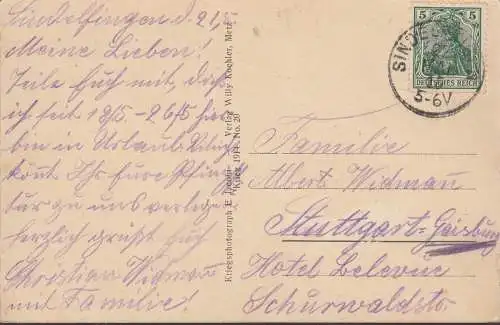 Sindelfingen d. 21.5.
Meine Lieben!
Teile Euch mit, daß
ich seit 19/5 - 26/5 hier
bin in Urlaub.
könnt Ihr Eure Pfingst
tur zu uns verlegen
herzlich grüßt Euch
Christian Widmann
mit Familie!
Kriegsphotograph E. Verlag Willy Koehler, Metz
Krieg 1914. No. 20
5 5
DEUTSCHES REICH
SINDEL
5-6V
Familie
Albert Widmann
Stuttgart-Gaisburg
Hotel Belevue
Schurwaldstr.